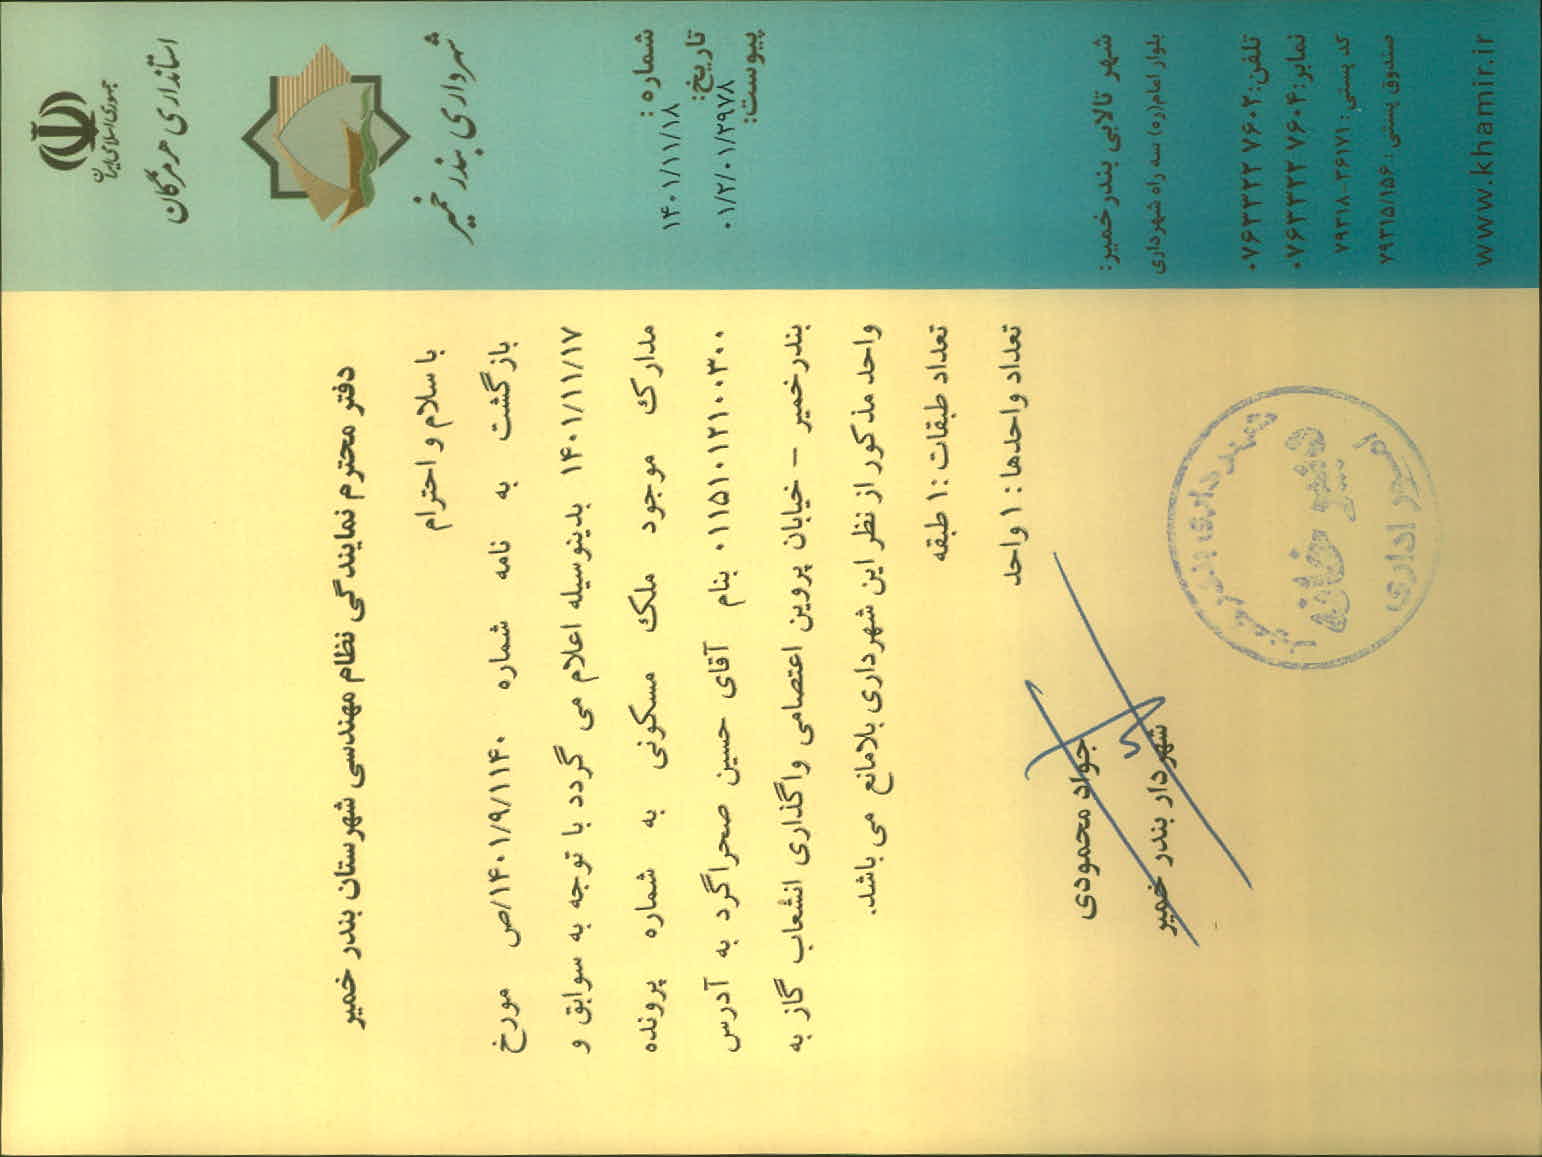 جمهوری اسلامی ایران
استانداری هرمزگان
شهرداری بندر خمیر
شماره :
۱۴۰۱/۱۱/۱۸
تاریخ:
۰۱/۲/۰۱/۲۹۷۸
پیوست:
شهر تالابی بندرخمیر:
بلوار امام(ره) سه راه شهرداری
تلفن: ۰۷۶۳۳۲۲ ۷۶۰۲
نمابر: ۰۷۶۳۳۲۲ ۷۶۰۴
کد پستی: ۷۹۳۱۸-۳۶۱۷۱
صندوق پستی: ۷۹۳۱۵/۱۵۶
www.khamir.ir
دفتر محترم نمایندگی نظام مهندسی شهرستان بندر خمیر
با سلام و احترام
بازگشت به نامه شماره ۱۴۰۱/۹/۱۱۴۰/ص مورخ
۱۴۰۱/۱۱/۱۷ بدینوسیله اعلام می گردد با توجه به سوابق و
مدارک موجود ملک مسکونی به شماره پرونده
۰۱۱۵۱۰۱۲۱۰۰۳۰۰ بنام آقای حسین صحراگرد به آدرس
بندرخمیر – خیابان پروین اعتصامی واگذاری انشعاب گاز به
واحد مذکور از نظر این شهرداری بلامانع می باشد.
تعداد طبقات :۱ طبقه
تعداد واحدها : ۱ واحد
جواد محمودی
شهردار بندر خمیر
شهرداری بندر خمیر
دبیر خانه
امور اداری